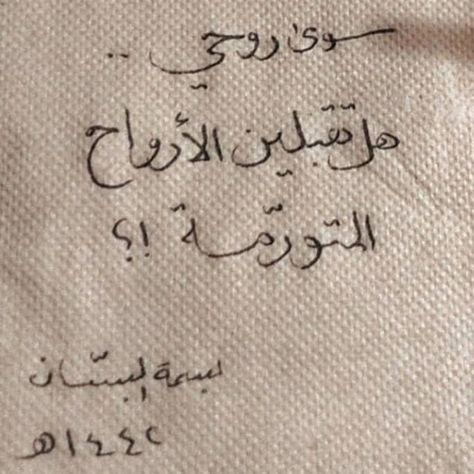 سوى روحي ..
هل تقبلين الأرواح
المتورّمة !؟
بسمة البستان
١٤٤٢هـ